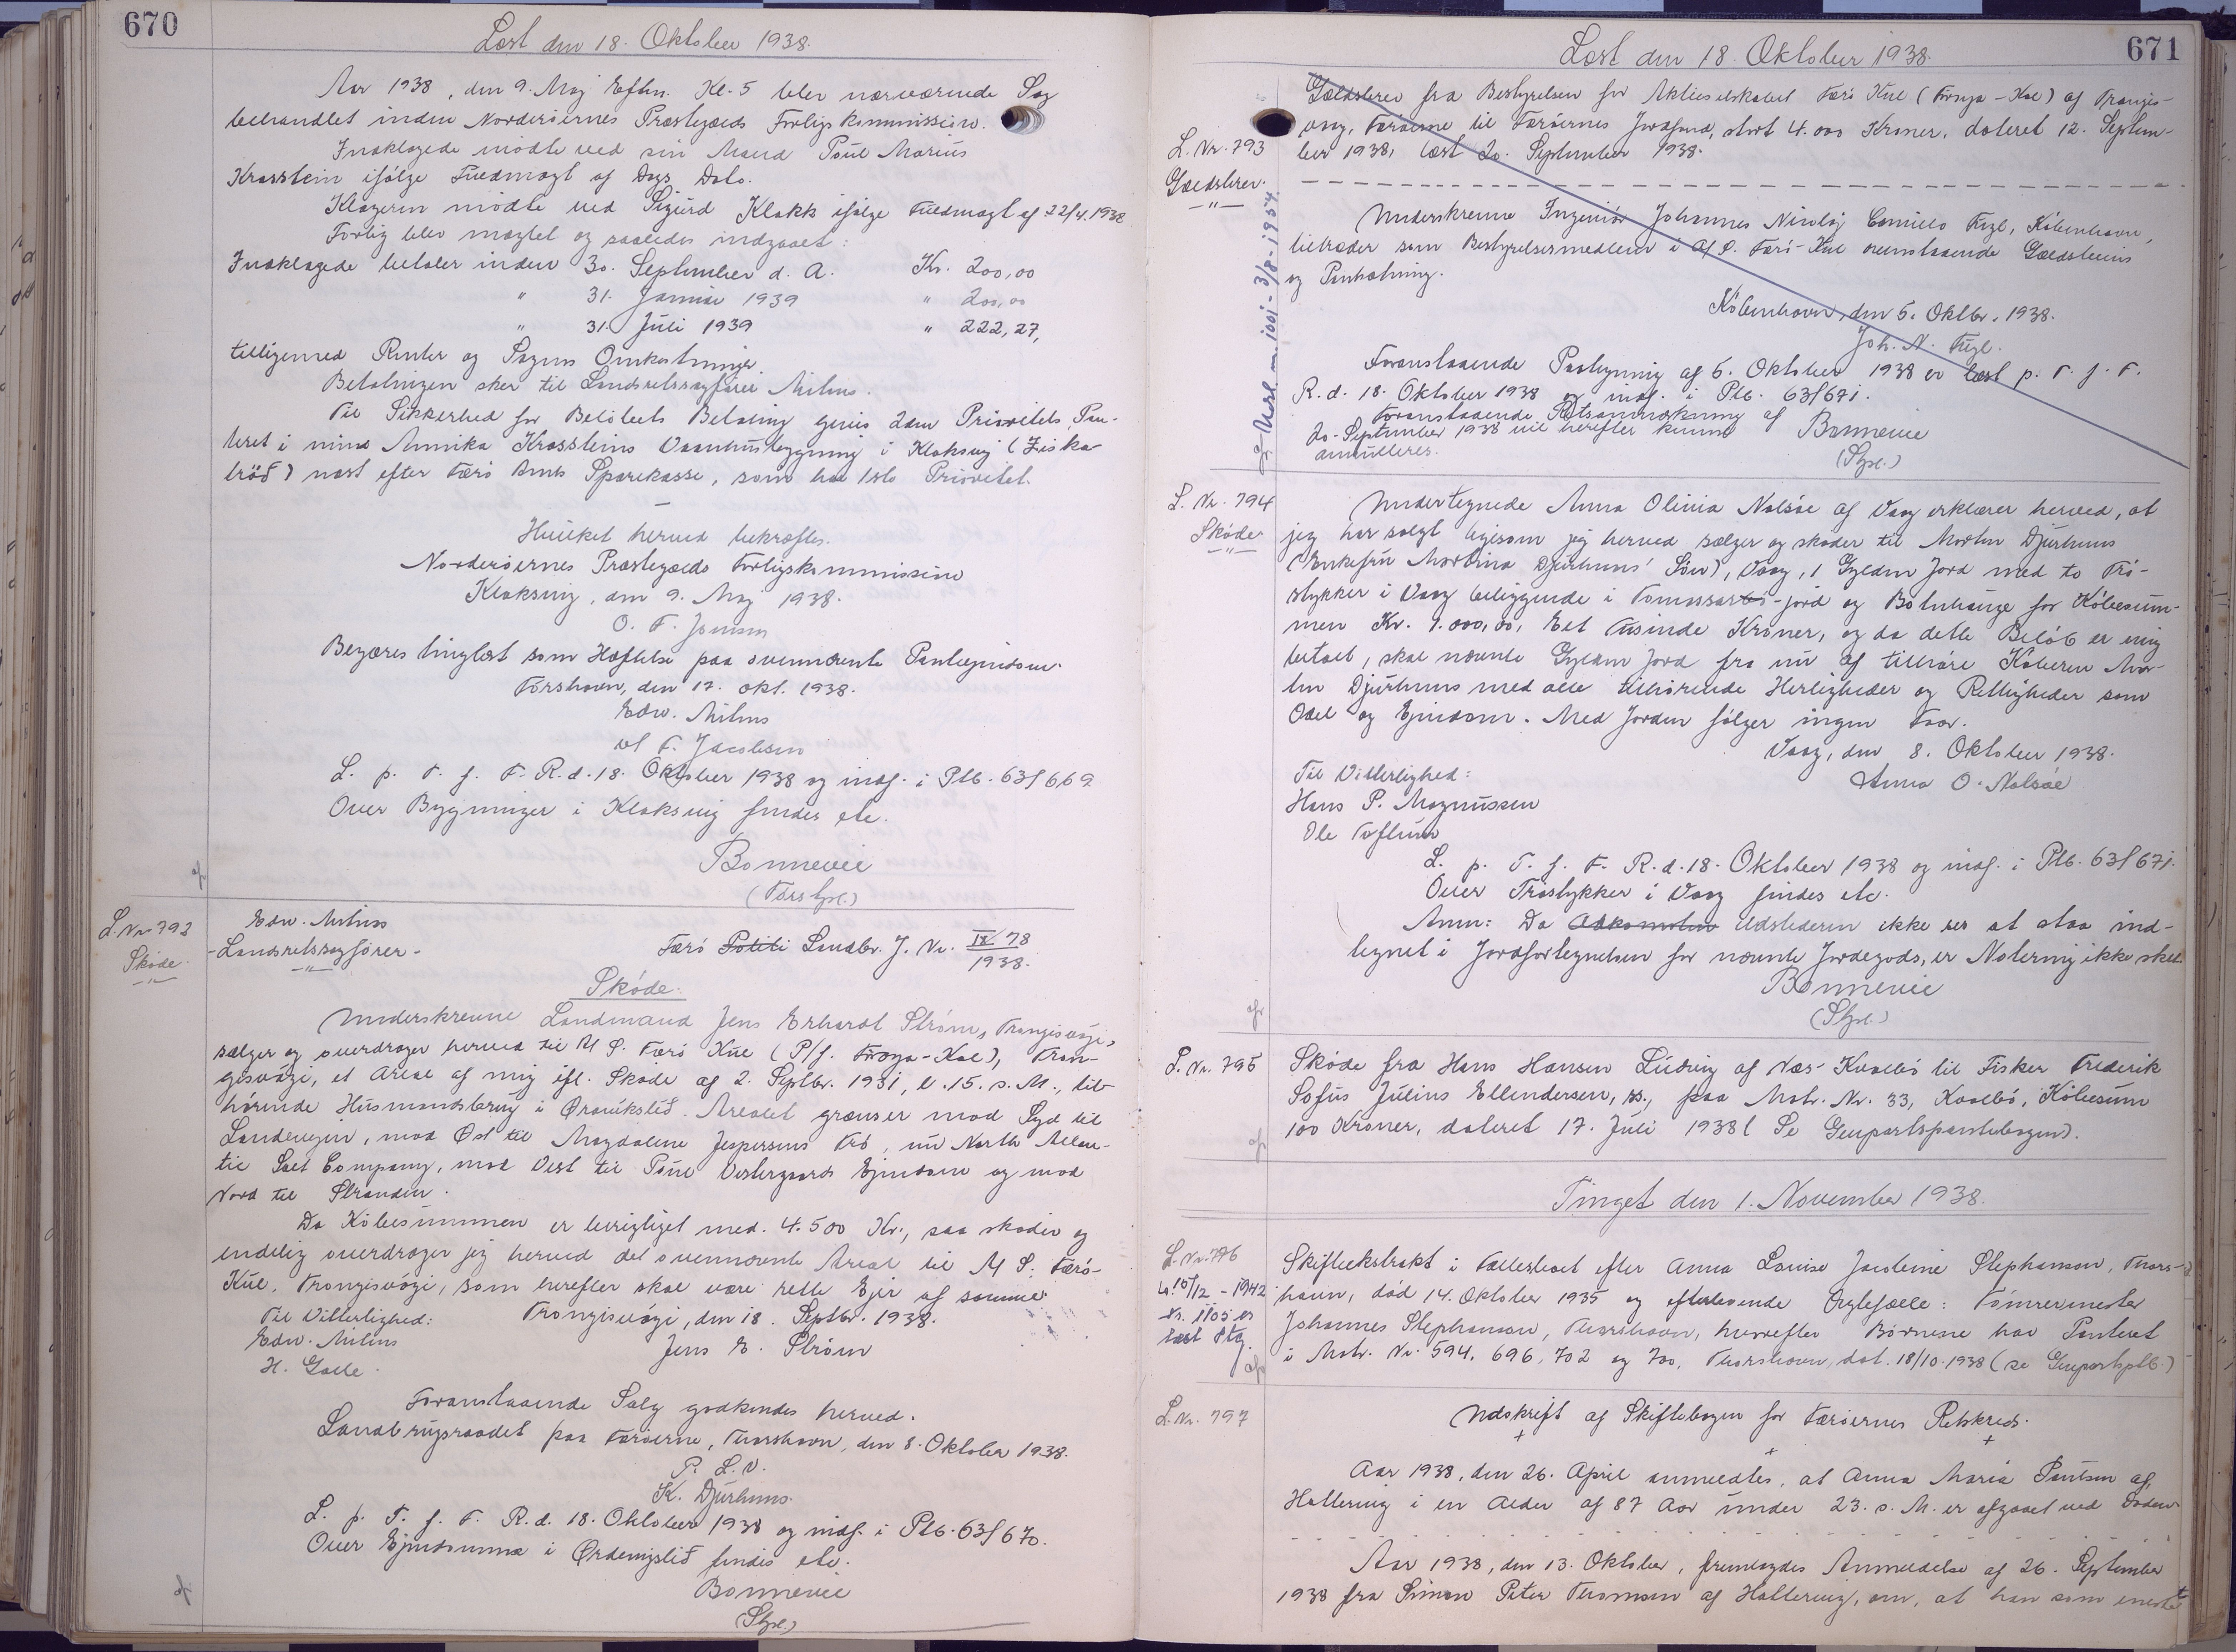 670
Læst den 18. Oktober 1938.
Aar 1938, den 9. Maj Eftm. Kl. 5 blev nærværende Sag
behandlet inden Norderøernes Præstegælds Forligskommission.
Indklagede mødte ved sin Mand Poul Marius
Krosstein ifølge Fuldmagt af Dags Dato.
Klageren mødte ved Sigurd Klakk ifølge Fuldmagt af 22/4.1938
Forlig blev mæglet og saaledes indgaaet:
Indklagede betaler inden 30. September d. A. Kr. 200,00
" 31. Januar 1939 " 200,00
" 31. Juli 1939 " 222,27,
tilligemed Renter og Sagens Omkostninger.
Betalingen sker til Landsretssagfører Mitens.
Til Sikkerhed for Beløbets Betaling gives 2den Prioritets Pan-
teret i mine Annika Krossteins Vaaningsbygning i Klaksvig (Ziska-
trøð) næst efter Færø Amts Sparekasse, som har 1ste Prioritet.
Hvilket herved bekræftes.
Norderøernes Præstegælds Forligskommission
Klaksvig, den 9. Maj 1938.
O. F. Joensen
Begæres tinglæst som Hæftelse paa ovennævnte Panteejendom.
Tórshavn, den 17. okt. 1938.
Edw. Mitens
v/ F. Jacobsen
L. p. T. f. F. R. d. 18. Oktober 1938 og indf. i Ptb. 63f 669.
Over Bygninger i Klaksvig findes etc.
Bonnevie
(Færs Gsl.)
L. Nr. 792
Skøde
Edw. Mitens
- Landsretssagfører -
Færø Politi Landbr. J. Nr. IX/78
1938.
Skøde.
Underskrevne Landmand Jens Erhardt Strøm, Trongisvági,
sælger og overdrager herved til A/S. Færø Kul (P/f. Føroya-Kol), Tron-
gisvági, et Areal af mig ifl. Skøde af 2. Septbr. 1931, l. 15. s. M., til-
hørende Husmandsbrug i Øravíkslíð. Arealet grænser mod Syd til
Landevejen, mod Øst til Magdalene Jespersens Trø, nu North Atlan-
tic Salt Company, mod Vest til Poul Vestergaards Ejendom og mod
Nord til Stranden.
Da Købesummen er berigtiget med. 4.500 Kr., saa skøder og
endelig overdrager jeg herved det ovennævnte Areal til A/S. Færø-
Kul, Trongisvági, som herefter skal være rette Ejer af samme
Til Vitterlighed: Trongisvági, den 18. Septbr. 1938.
Edw. Mitens Jens E. Strøm
H. Galle.
Foranstaaende Salg godkendes herved.
Landbrugsraadet paa Færøerne, Thorshavn, den 8. Oktober 1938.
P. L. V.
K. Djurhuus.
L. p. T. f. F. R. d. 18. Oktober 1938 og indf. i Ptb. 63f 670.
Over Ejendomme i Ørdevigslíð findes etc.
Bonnevie
(Stfsl.)
671
Læst den 18. Oktober 1938.
L. Nr. 793
Gældsbrev
Gældsbrev fra Bestyrelsen for Aktieselskabet Færø Kul (Føroya-Kol) af Trongis-
vaag, Færøerne til Færøernes Jordfond, stort 4.000 Kroner, dateret 12. Septem-
ber 1938, læst 20. September 1938.
Underskrevne Ingeniør Johannes Nicolaj Camillo Fugl, København,
tiltræder som Bestyrelsesmedlem i A/S. Færø-Kul ovenstaaende Gældsbevis
og Pantsætning.
København, den 6. Oktbr. 1938.
Joh. N. Fugl.
Foranstaaende Paategning af 6. Oktober 1938 er læst p. T. f. F.
R. d. 18. Oktober 1938 og indf. i Ptb. 63f 671.
Foranstaaende Retsanmærkning af
20. September 1938 vil herefter kunne
annulleres.
Bonnevie
(Stfsl.)
L. Nr. 794
Skøde
Undertegnede Anna Olivia Nolsøe af Vaag erklærer herved, at
jeg har solgt ligesom jeg herved sælger og skøder til Morten Djurhuus
(Enkefru Martina Djurhuus' Søn), Vaag, 1 Gylden Jord med to Trø-
stykker i Vaag beliggende i Tomassar-jord og Botnhauge for Købesum-
men Kr. 1.000,00, Eet Tusinde Kroner, og da dette Beløb er mig
betalt, skal nævnte Gylden Jord fra nu af tilhøre Køberen Mor-
ten Djurhuus med alle tilhørende Herligheder og Rettigheder som
Odel og Ejendom. Med Jorden følger ingen Faar.
Vaag, den 8. Oktober 1938.
Til Vitterlighed: Anna O. Nolsøe
Hans P. Magnussen
Ole Toftum
L. p. T. f. F. R. d. 18. Oktober 1938 og indf. i Ptb. 63f 671.
Over Trøstykker i Vaag findes etc.
Anm: Da Adkomsten Udstederen ikke ses at staa ind-
tegnet i Jordfortegnelsen for nævnte Jordegods, er Notering ikke sket
Bonnevie
(Stfsl.)
L. Nr. 795
Skøde fra Hans Hansen Ludvig af Næs-Kvalbø til Fisker Frederik
Sofus Julius Ellendersen, ss., paa Matr. Nr. 33, Kvalbø, Købesum
100 Kroner, dateret 17. Juli 1938 (Se Genpartspantebogen).
Tinget den 1. November 1938.
L. Nr. 796
L. 15/12 - 1942
Nr. 1105 er
læst Ptg.
Skifteekstrakt i Fællesboet efter Anna Louise Jacobine Stephanson, Thors-
havn, død 14. Oktober 1935 og efterlevende Ægtefælle: Tømrermester
Johannes Stephanson, Thorshavn, hvorefter Børnene har Panteret
i Matr. Nr. 594, 696, 702 og 700, Thorshavn, dat. 18/10.1938 (se Genpartsptb.)
L. Nr. 797
Udskrift af Skiftebogen for Færøernes Retskreds.
Aar 1938, den 26. April anmeldtes, at Anna Maria Poulsen af
Hattervig i en Alder af 87 Aar under 23. s. M. er afgaaet ved Døden
Aar 1938, den 13. Oktober, fremlagdes Anmeldelse af 26. September
1938 fra Simon Peter Thomsen af Hattervig, om, at han som eneste